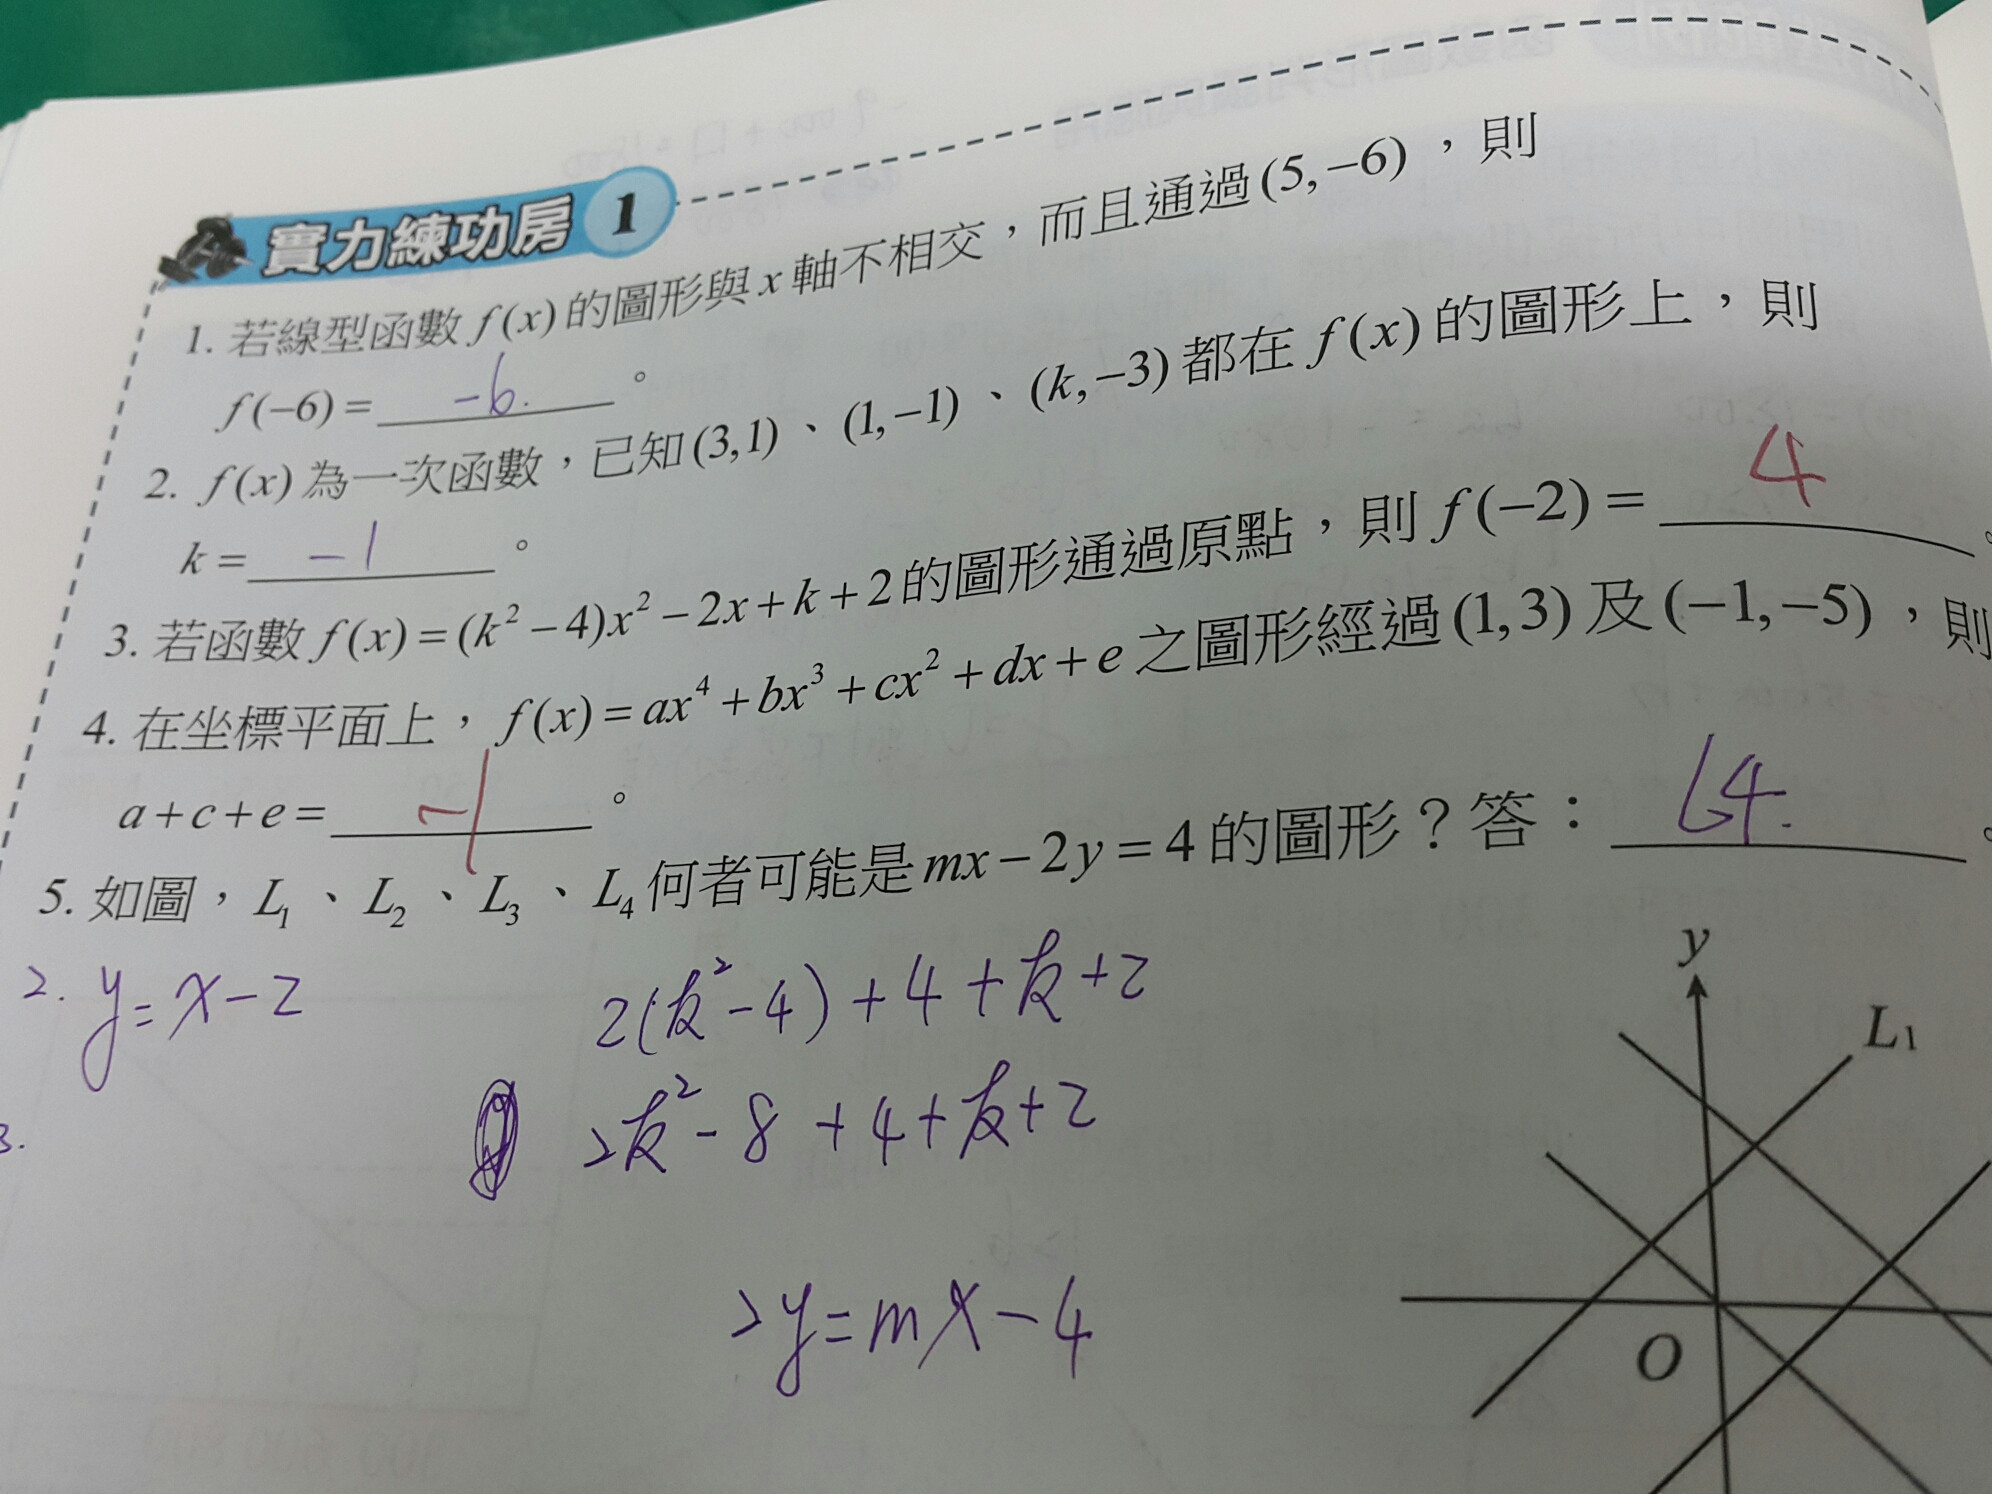 實力練功房 1
1. 若線型函數 f(x) 的圖形與 x 軸不相交,而且通過 (5,−6),則
f(−6) = -6. 。
2. f(x) 為一次函數,已知 (3,1)、(1,−1)、(k,−3) 都在 f(x) 的圖形上,則
k = -1 。
3. 若函數 f(x) = (k²−4)x²−2x+k+2 的圖形通過原點,則 f(−2) = 4 。
4. 在坐標平面上,f(x) = ax⁴+bx³+cx²+dx+e 之圖形經過 (1,3) 及 (−1,−5),則
a+c+e = -1 。
5. 如圖,L₁、L₂、L₃、L₄ 何者可能是 mx−2y=4 的圖形?答: L4. 。
2. y=x-2
2(k²-4)+4+k+2
2k²-8+4+k+2
3.
2y=mx-4
y
L₁
O